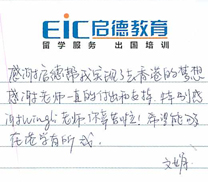 EIC启德教育
留学服务 出国培训
感谢启德帮我实现了去香港的梦想
感谢老师一直的付出和支持,特别感
谢wingli老师!你辛苦啦!希望能够
在港学有所成。